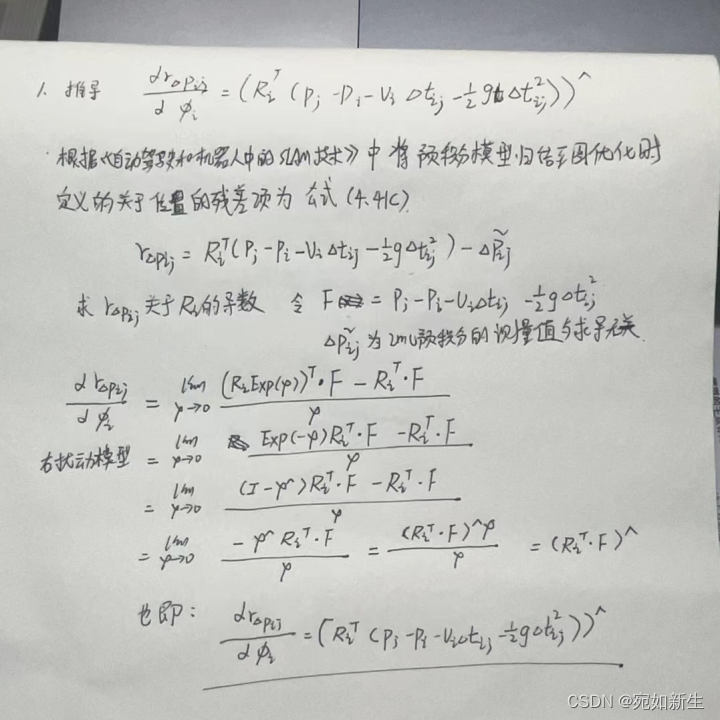 1. 推导 dr_Δpij / dφ_i = (R_i^T (p_j - p_i - v_i Δt_ij - 1/2 g Δt_ij^2))^
根据《自动驾驶和机器人中的SLAM技术》中将预积分模型归结至图优化时
定义的关于位置的残差项为公式 (4.41c).
r_Δpij = R_i^T (P_j - P_i - V_i Δt_ij - 1/2 g Δt_ij^2) - Δp̃_ij
求 r_ΔPij 关于 R_i 的导数 令 F = P_j - P_i - V_i Δt_ij - 1/2 g Δt_ij^2
Δp̃_ij 为 IMU 预积分的观量值与求导无关.
dr_Δpij / dφ_i = lim φ→0 ((R_i Exp(φ))^T · F - R_i^T · F) / φ
右扰动模型 = lim φ→0 (Exp(-φ) R_i^T · F - R_i^T · F) / φ
= lim φ→0 ((I - φ^) R_i^T · F - R_i^T · F) / φ
= lim φ→0 (- φ^ R_i^T · F) / φ = ((R_i^T · F)^ φ) / φ = (R_i^T · F)^
也即: dr_Δpij / dφ_i = (R_i^T (p_j - p_i - v_i Δt_ij - 1/2 g Δt_ij^2))^
CSDN @宛如新生